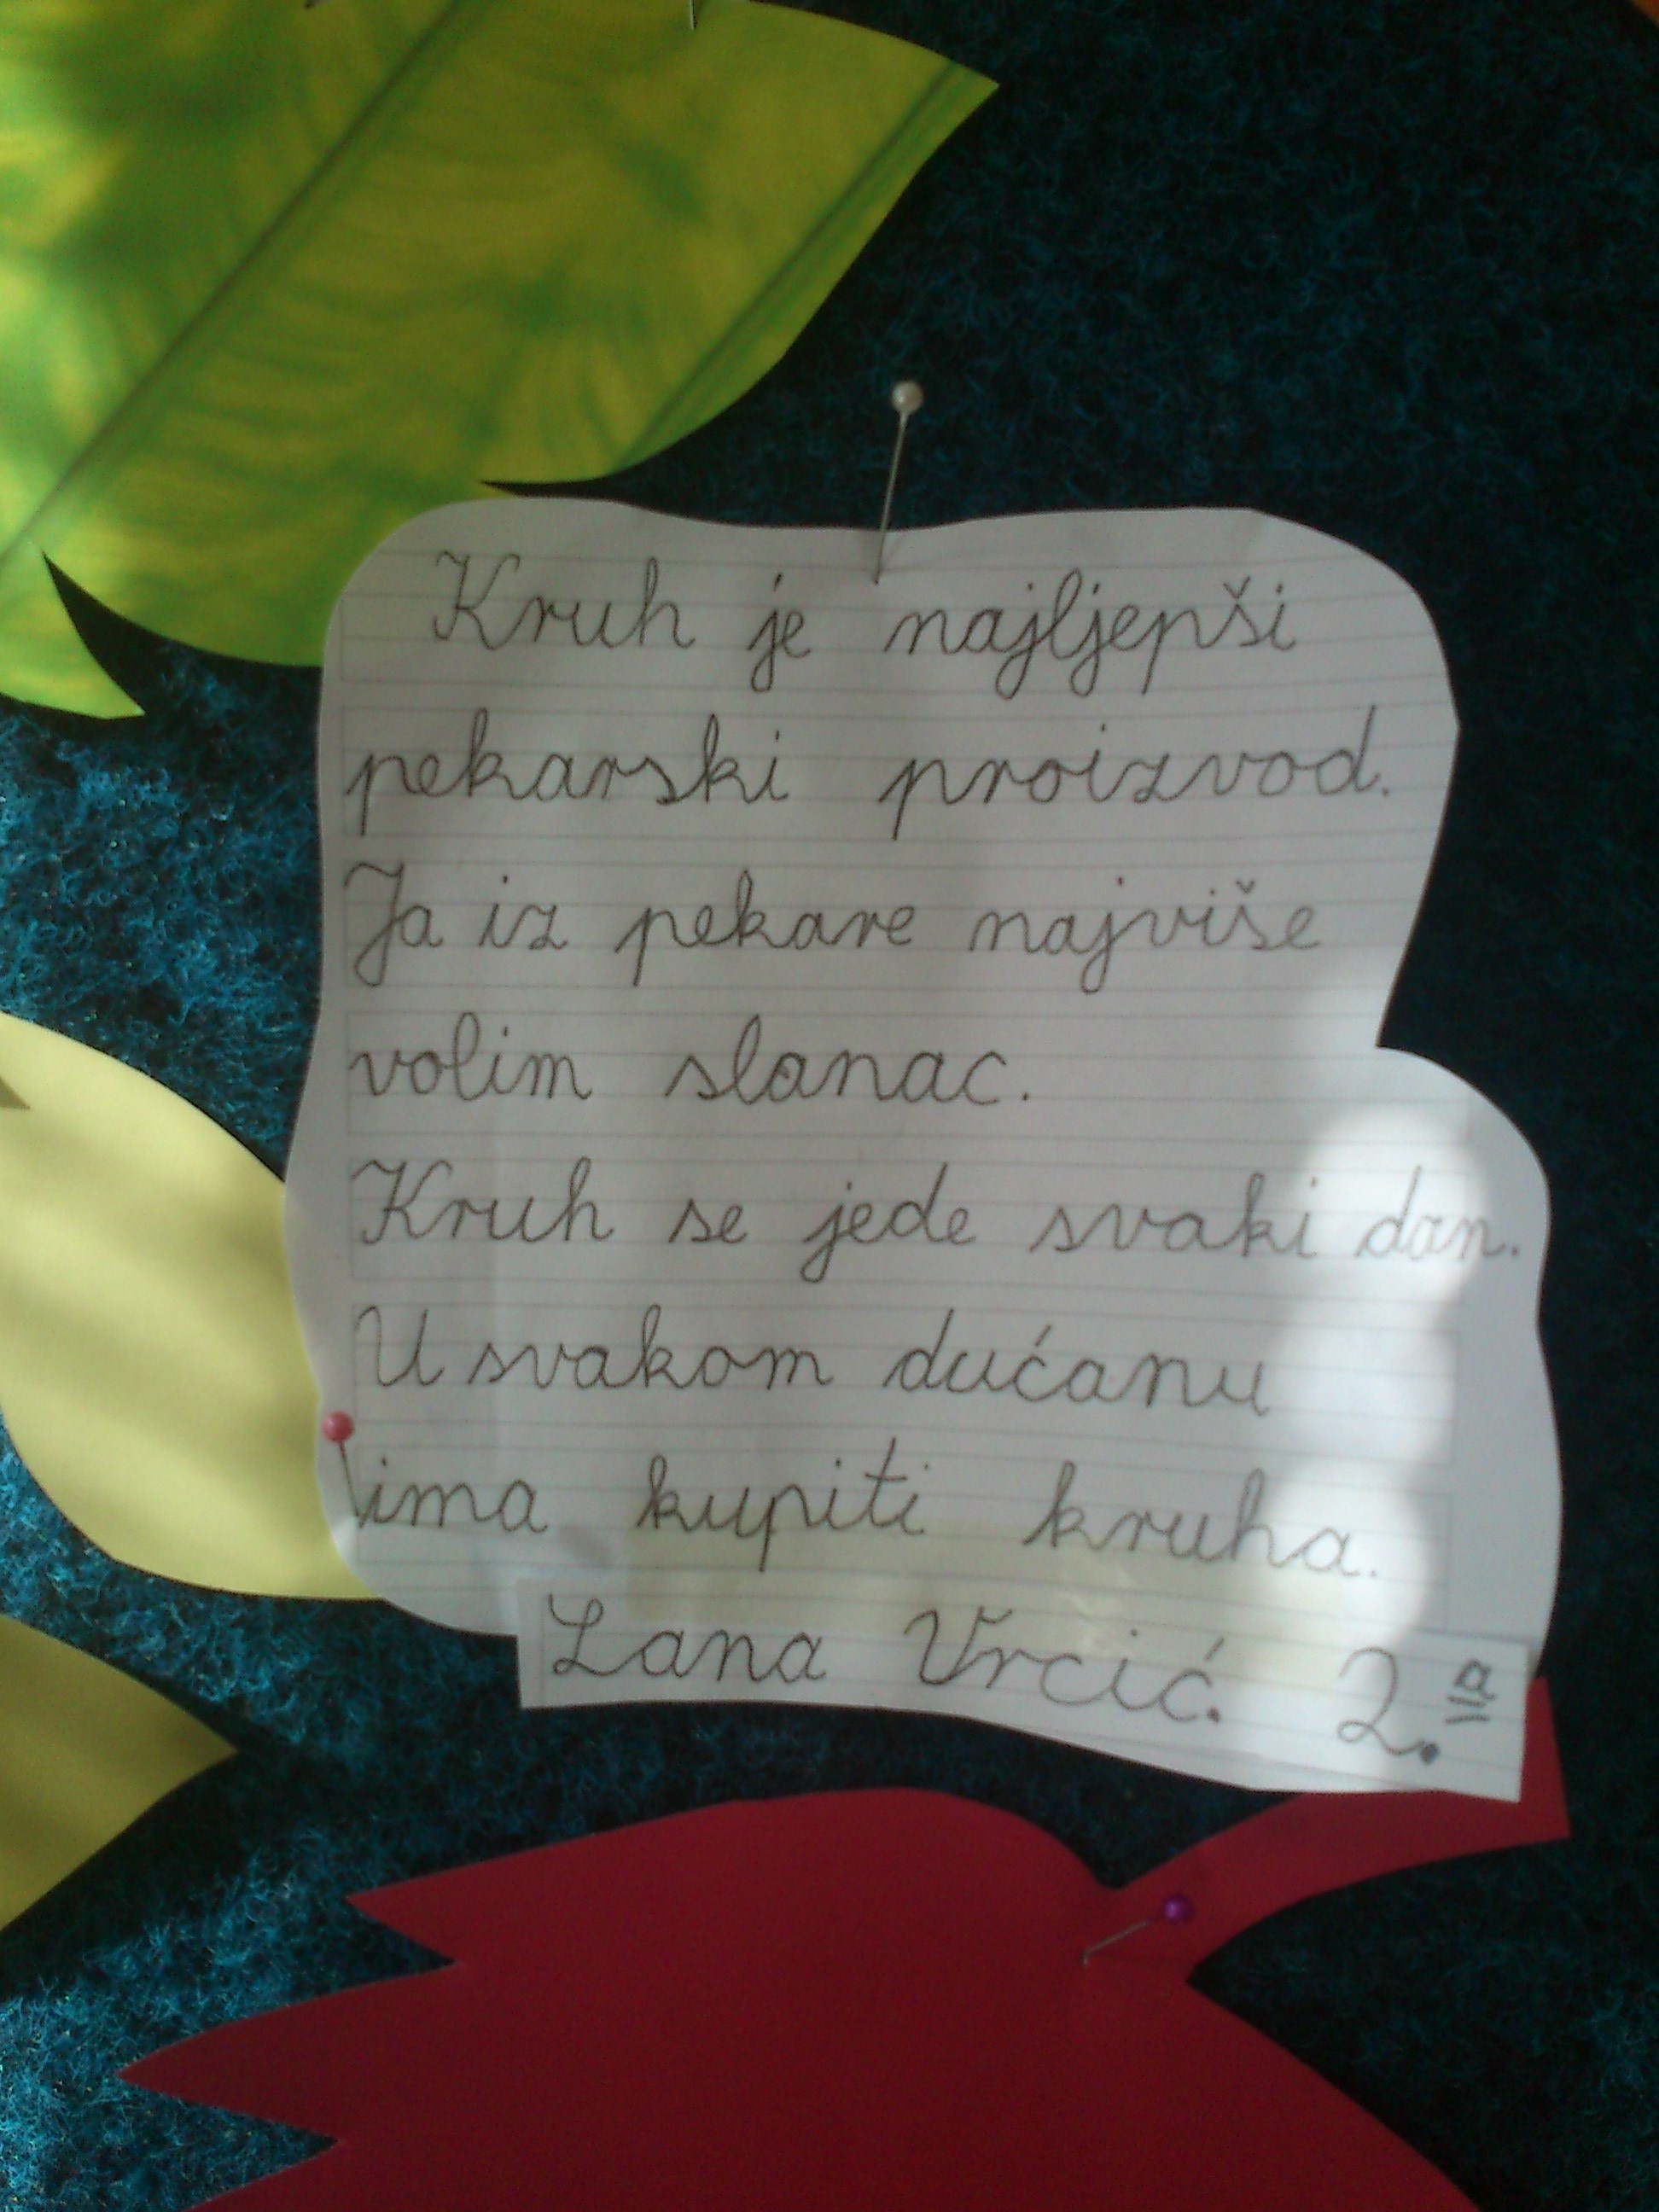 Kruh je najljepši
pekarski proizvod.
Ja iz pekare najviše
volim slanac.
Kruh se jede svaki dan.
U svakom dućanu
ima kupiti kruha.
Lana Vrcić. 2.a